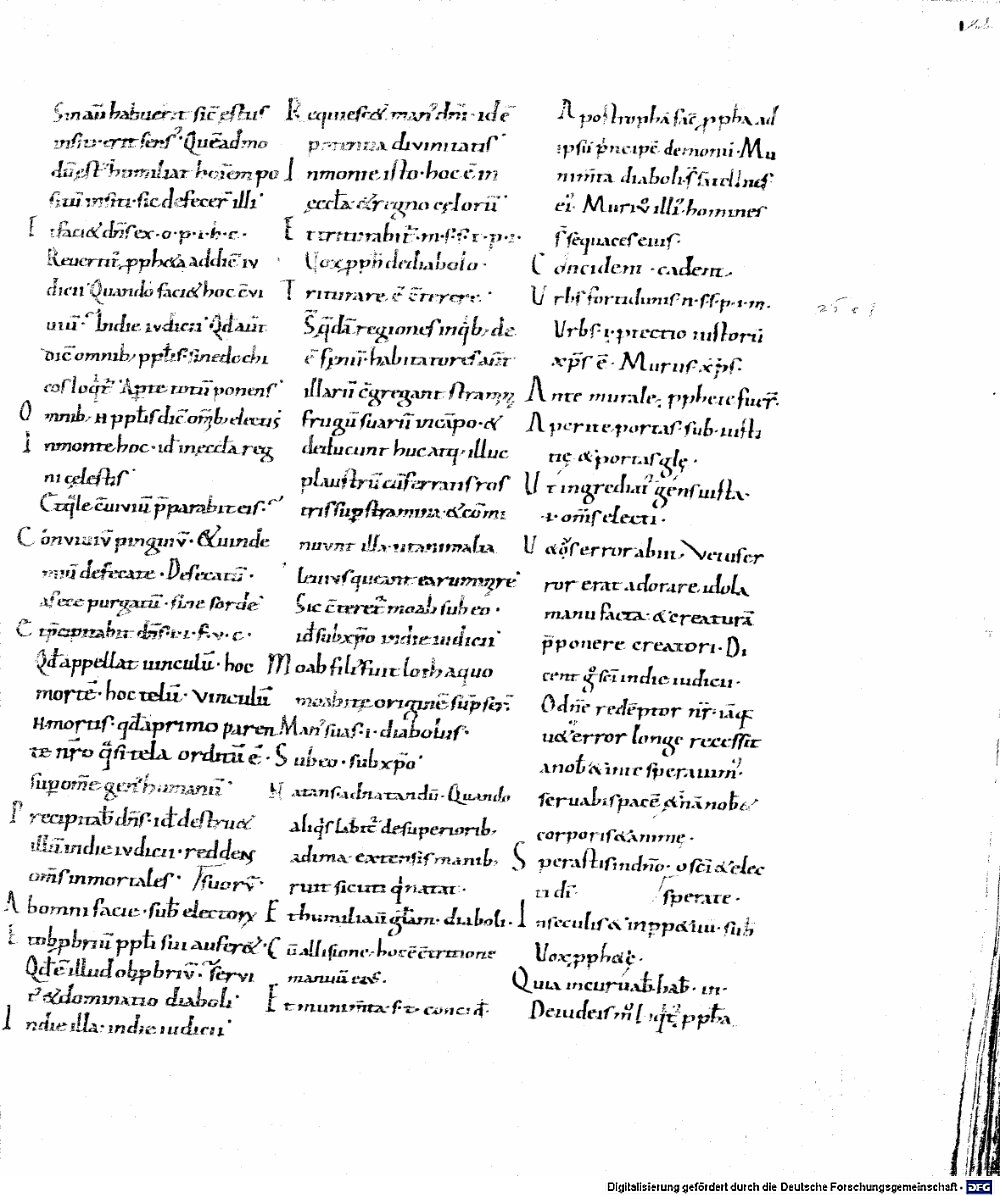 Sinaū habuerīt sic̄ ęstus
insitı erit sens᾽. Quēadmo
dū ęst᾽ humiliat hoıēm po
situ in siti. sic defecer̄ illi
Et faci& dn̄s ex. o. p. i. h. c.
Reuertit᷑ ꝓph&a addiē iv
dicii. Quando faci& hoc c̄vi
uiū. Indie ivdicii. Qd̄ aut̄
dic̄ omnib; ppłis. sinedochi
cos loq͛t᷑. Aperte totū ponens
Omnib; .n. ppłis dic̄ om̄ib; electis
In monte hoc. id̄ in ęccła reg
ni cęlestis.
C̄ quale c̄uiviū p̄parabit eis.
Convivıv̄ pinguıv̄. & uinde
miē defecate. Defecatū.
afece purgatū. sine sorde
Et p̄cipitabit dn̄s. i. i. f. v. c.
Qd̄ appellat uinculū. hoc
mortē. hoc telū. vinculū
.n. mortis. qd̄ aprimo paren
te nr̄o q͛si tela orditū ē.
suꝑ om̄e gen᾽ humanū.
Precipitab̄ dn̄s. id̄ destru&
illū indie ivdicii. reddens
om̄s inmortales. suorv̄.
Ab omni facie. sub̄ electorꝝ
Et obꝓbriū ppłi sui aufer&.
Qd̄ ē illud obꝓbriv̄. servi
t᾽ & dominatio diaboli
In die illa. in die iudicii.
Requiesc& man᾽ dn̄i. id ē
potentia divinitatis
In monte isto. hoc ē in
ęccła & regno cęlorū
Et triturabit᷑. m. s. s. t. p. i.
Vox ꝓph̄ de diabolo.
Triturare. ē c̄terere.
S. q̄dā regiones in q͛b; de
ē fenū. habitatores aut̄
illarū c̄gregant stramına
frugū suarū in cāpo. &
deducunt huc atq; illuc
plaustrū cū ferrans ros
tris suꝑ stramina. & com̄i
nuvnt illa. ut animalia
leuıvs queant ea rumınare
Sic c̄teret᷑ moab sub eo.
id̄ sub xp̄o in die iudicii
Moab fili᾽ fuit loth. a quo
moabitę originē sūpser̄.
Man᾽ suas. i. diabolus.
Sub eo. sub xp̄o
Natans. ad natandū. Quando
aliq͛s lab̄it᷑ de superiorib;
ad ima. extensis manib;
ruit sicuti q͛ natat.
Et humiliaū głam. diaboli.
Cū allisione. hoc ē c̄tritione
manuū ei᾽.
Et munim̄ta. s. t. concid̄.
Apostropha fac̄ ꝓpha ad
ipsū p̄ncipē demonū. Mu
nim̄ta diaboli. s̄ fallines
ei᾽. Muri v̄ illi᾽. homines
s̄ sequaces eius.
Concident. cadent.
Vrbs fortidunis n. s. s. p. i. m.
Vrbs. i. ꝓtectio iustorū
xp̄s ē. Murus. xp̄s.
Ante murale. ꝓphete fuer̄.
Aperite portas. sub. iusti
tię & portas glę.
Vt ingrediat᷑ gens iusta.
.i. om̄s electi.
V&᾽ error abiit. Vetus er
ror erat adorare idola
manu facta. & creaturā
p̄ponere creatori. Di
cent g᷑ sc̄i in die iudicii.
O dn̄e redēptor nr̄. iāq;
u&᾽ error longe recessit
a nob̄ & in te speravim᾽.
servabis pacē & ı̄nā nob̄ &
corporis & animę.
Sperastis in dn̄o. o sc̄i & elec
ti dī. sperate.
In seculis & in ppetuū. sub̄
Vox ꝓph&ę.
Quia incurvab̄ hab̄. in.
De iudeis m̊ loq͛t᷑ ꝓpha
Digitalisierung gefördert durch die Deutsche Forschungsgemeinschaft - DFG